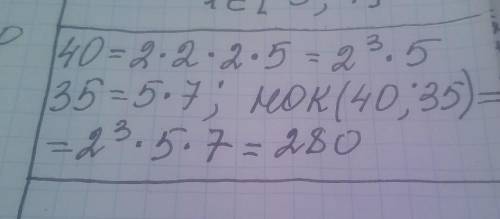 40 = 2 · 2 · 2 · 5 = 2³ · 5
35 = 5 · 7; НОК(40; 35) =
= 2³ · 5 · 7 = 280